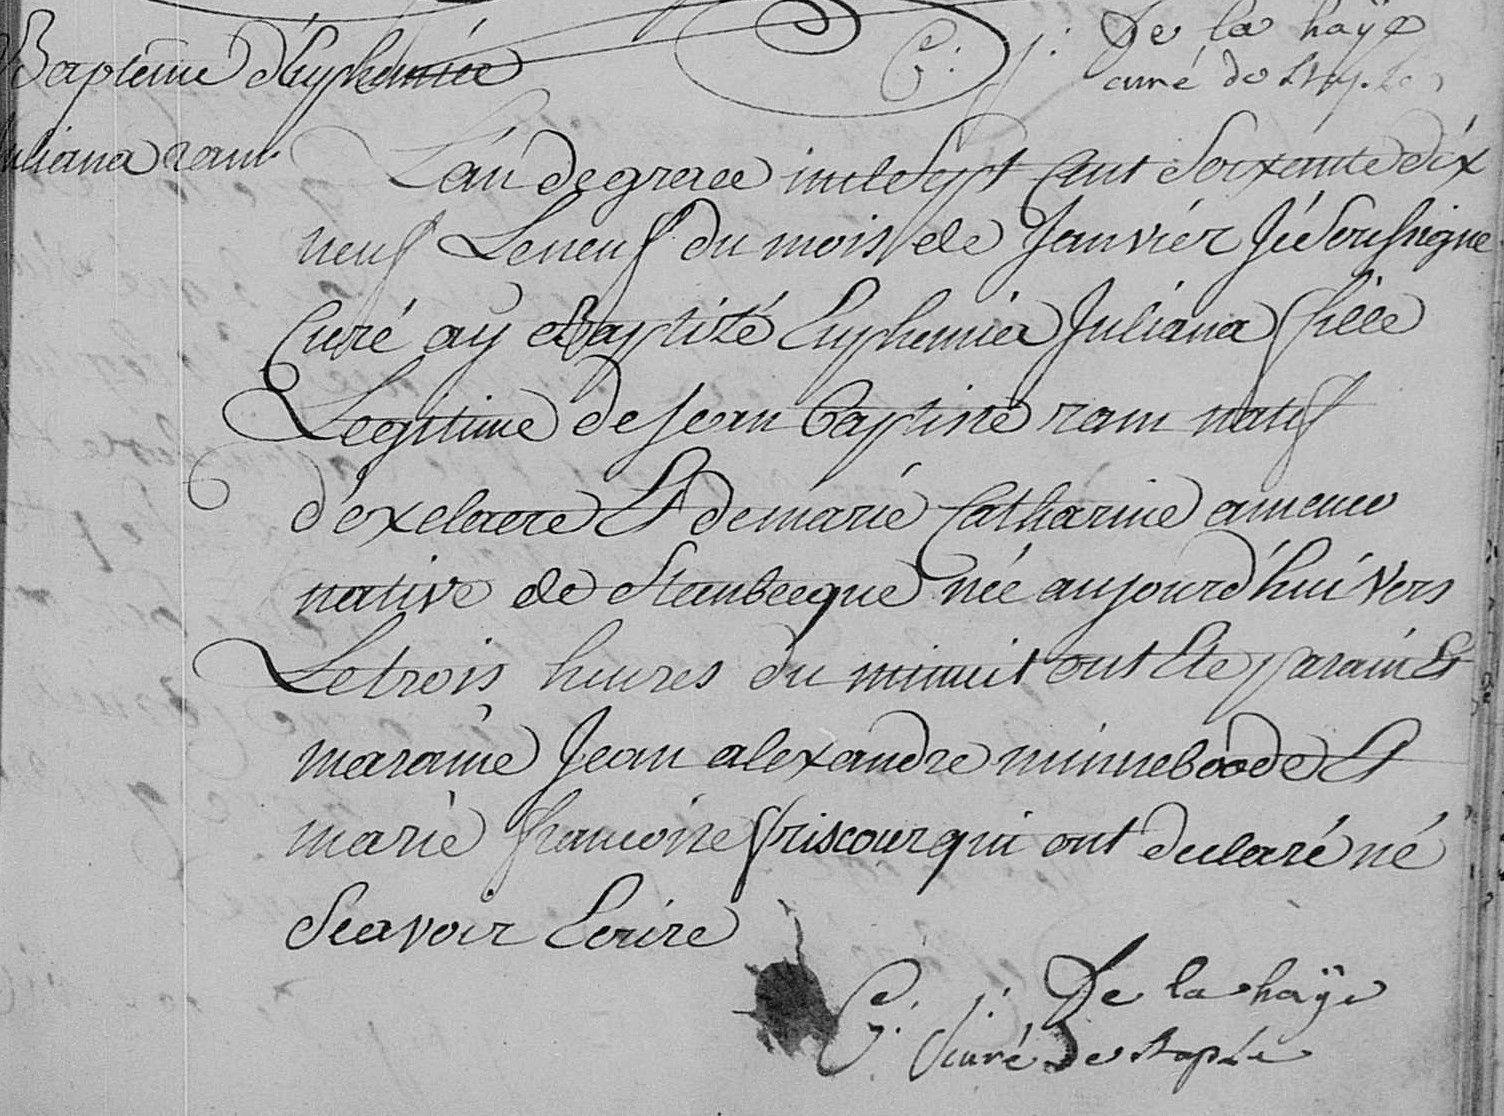 De la haÿe
curé de Staple
Baptême d'Euphemie
Juliana ram
L'an de grace mil Sept Cent Soixante dix
neuf Le neuf du mois de Janvier Je Soussigne
Curé ay Baptizé Euphemia Juliana fille
Legitime de Jean baptiste ram natif
d'exelaere Et de marie Catharine ameuw
native de Steenbecque née aujourd'hui vers
Le trois heures du minuit ont Ete parain Et
maraine Jean alexandre minneboode Et
marie francoise friscour qui ont declaré né
Scavoir Ecrire
C: j: De la haÿe
curé De Staple